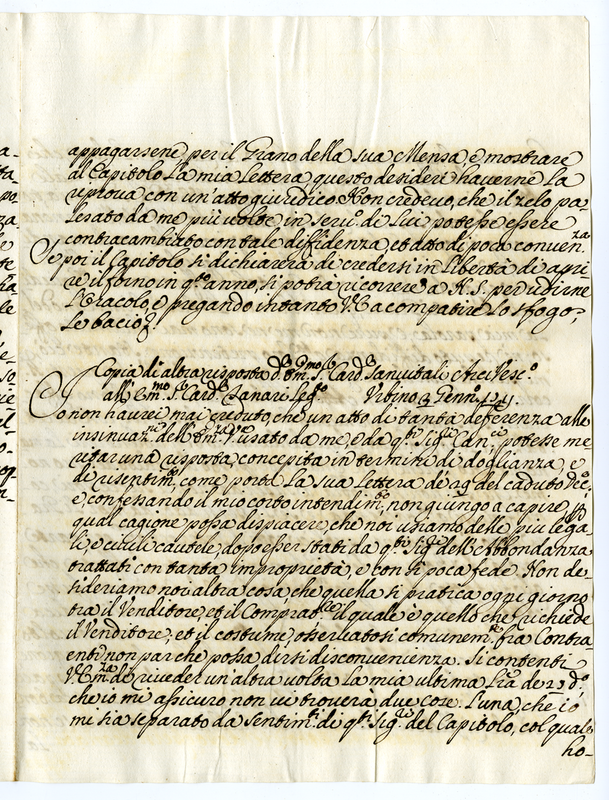 appagarsene, per il Grano della sua Mensa, e mostrare
al Capitolo la mia Lettera, questo desiderò haverne la
riprova con un'atto giuridico. Non credevo, che il zelo pa-
lesato da me più volte in serv.o di Lui potesse essere
contracambiato con tale diffidenza, et atto di poca conven.za
Se poi il Capitolo si dichiarerà di credersi in Libertà di apri
re il forno in q.to anno, si potrà ricorrere a N.S. per udirne
l'Oracolo, e pregando intanto V.E. a compatire lo sfogo,
le bacio
Copia di altra risposta d. Em.mo S. Card. Sanvitali Arcivesc.o
all' Em.mo S. Card. Zanari Leg.o Urbino 3 Genn.o
Io non haurei mai creduto, che un atto di tanta deferenza alle
insinuaz.ni dell' Em.za V. usato da me, e da q.ti Sig.ri Can.ci, potesse me
ritar una risposta, concepita in termini di doglianza, e
di risentim.to, come porta la sua Lettera de' 29 del caduto Dec.e
e, confessando il mio corto intendim.to, non giungo a capire, p
qual cagione possa dispiacere, che noi usiamo delle più lega-
li, e civili cautele, dopo esser stati da q.ti Sig.ri dell' Abbondanza
trattati con tanta improprietà, e con sì poca fede. Non de-
sideriamo noi altra cosa, che quella si pratica ogni giorno
tra il Venditore, et il Comprat.re, il quale è quello che richiede
il Venditore, et il costume, osservatosi comunem.te fra Contra-
enti non par che possa dirsi disconvenienza. Si contenti
V. Em.za de riveder un'altra volta la mia ultima L.ra de 23 d.o
che io mi assicuro non vi troverà due cose. L'una, che io
mi sia separato da sentim.ti di q.ti Sig.ri del Capitolo, col quale
ho-